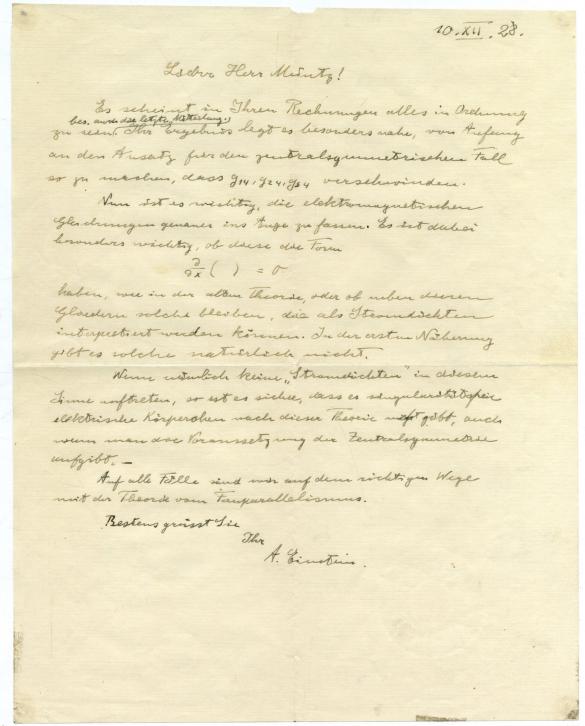 10.XII.28.
Lieber Herr Müntz!
Es scheint in Ihren Rechnungen alles in Ordnung
bes. auch das letzte Mitteilung.
zu sein. Ihr Ergebnis legt es besonders nahe, von Anfang
an den Ansatz für den zentralsymmetrischen Fall
so zu machen, dass g14, g24, g34 verschwinden.
Nun ist es wichtig, die elektromagnetischen
Gleichungen genauer ins Auge zu fassen. Es ist dabei
besonders wichtig, ob diese die Form
∂/∂x ( ) = 0
haben, wie in der alten Theorie, oder ob neben diesen
Gliedern solche bleiben, die als Stromdichten
interpretiert werden können. In der ersten Näherung
gibt es solche natürlich nicht.
Wenn nämlich keine „Stromdichten" in diesem
Sinne auftreten, so ist es sicher, dass es singularitätsfreie
elektrische Körperchen nach dieser Theorie nicht gibt, auch
wenn man die Voraussetzung der Zentralsymmetrie
aufgibt. –
Auf alle Fälle sind wir auf dem richtigen Wege
mit der Theorie vom Fernparallelismus.
Bestens grüsst Sie
Ihr
A. Einstein.